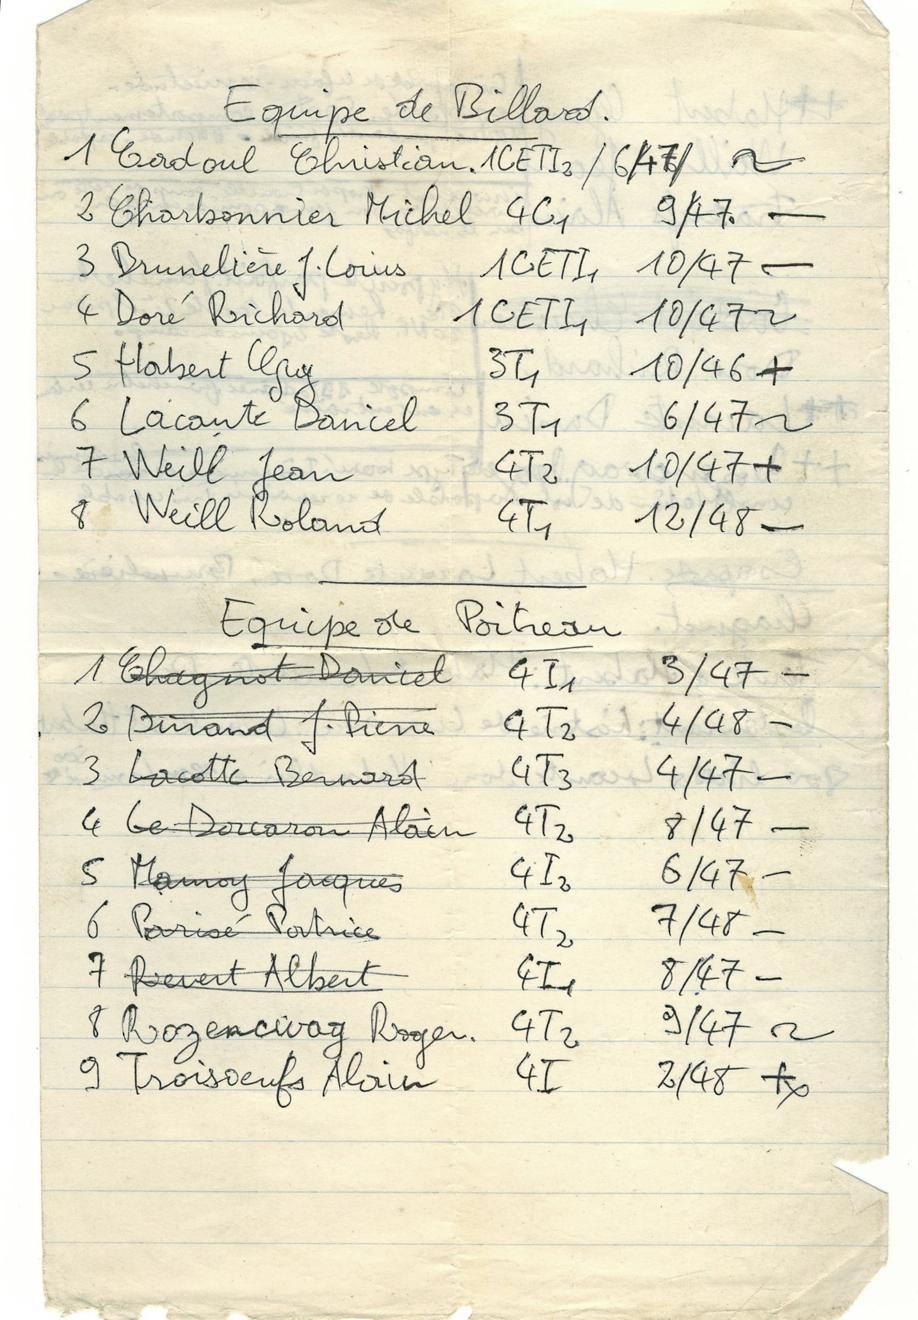 Equipe de Billard.
1 Cadoul Christian. 1CETI2 / 6/47 ~
2 Charbonnier Michel 4C1 9/47. —
3 Brunelière J. Louis 1CETI1 10/47 —
4 Doré Richard 1CETI1 10/47 ~
5 Habert Guy 3T1 10/46 +
6 Lacante Daniel 3T1 6/47 ~
7 Weill Jean 4T2 10/47 +
8 Weill Roland 4T1 12/48 —
Equipe de Poitreau
1 Chagnot Daniel 4I1 3/47 —
2 Dinand J. Pierre 4T2 4/48 —
3 Lacotte Bernard 4T3 4/47 —
4 Le Dorcaron Alain 4T2 8/47 —
5 Mamoy Jacques 4I2 6/47 —
6 Parisé Patrice 4T2 7/48 —
7 Revert Albert 4I1 8/47 —
8 Rozencwag Roger. 4T2 9/47 ~
9 Troisoeufs Alain 4I 2/48 +